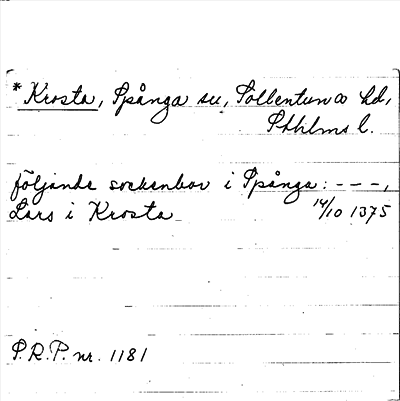 * Krosta, Spånga sn, Sollentuna hd,
Sthlms l.
följande sockenbor i Spånga: - - -,
Lars i Krosta 14/10 1375
P.R.P. nr. 1181